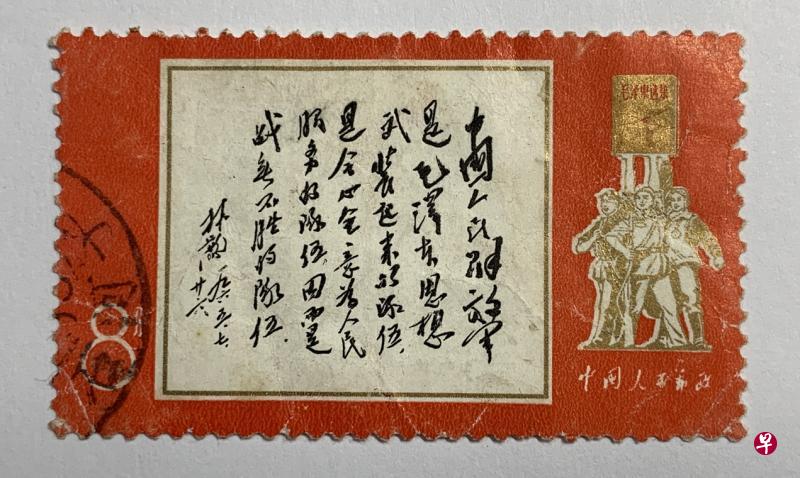 中國人民解放军
是毛澤东思想
武裝起来的隊伍,
是全心全意为人民
服务的隊伍,因而是
战无不胜的隊伍.
林彪
一九六五.七.
廿六
毛泽东选集
中国人民邮政
8
早